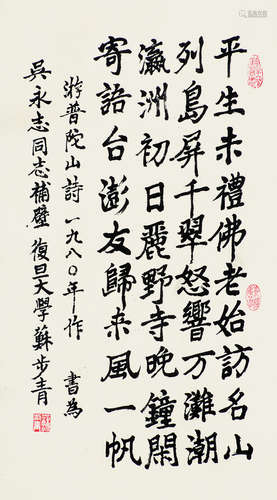 平生未禮佛老始訪名山
列島屏千翠怒響万灘潮
瀛洲初日麗野寺晚鐘閑
寄語台澎友歸来風一帆
游普陀山詩一九八〇年作 書為
吳永志同志補壁 復旦大學蘇步青